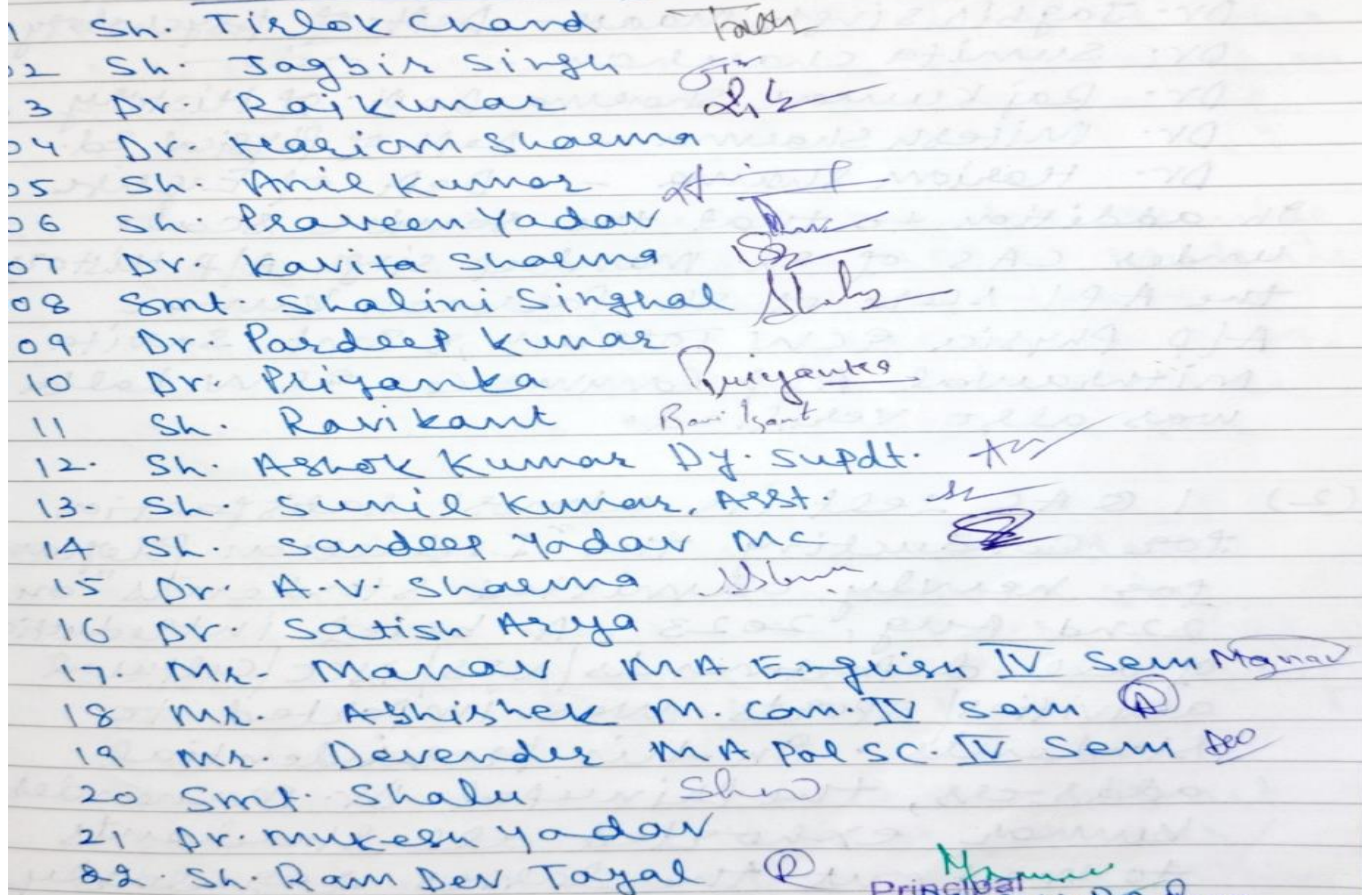 1 Sh. Tirlok Chand
02 Sh. Jagbir Singh
3 Dr. Raj Kumar
04 Dr. Hariom Sharma
05 Sh. Anil Kumar
06 Sh. Praveen Yadav
07 Dr. Kavita Sharma
08 Smt. Shalini Singhal
09 Dr. Pardeep Kumar
10 Dr. Priyanka Priyanka
11 Sh. Ravi Kant Ravi Kant
12. Sh. Ashok Kumar Dy. Supdt.
13. Sh. Sunil Kumar, Asst.
14 Sh. Sandeep Yadav MC
15 Dr. A.V. Sharma
16 Dr. Satish Arya
17. Mr. Manav MA English IV Sem Manav
18 Mr. Abhishek M. Com. IV Sem
19 Mr. Devender MA Pol Sc. IV Sem
20 Smt. Shalu
21 Dr. Mukesh Yadav
22. Sh. Ram Dev Tayal
Principal